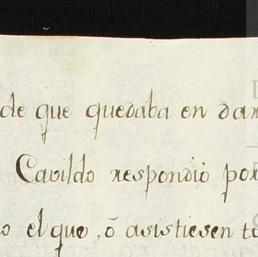 de que quedaba en dar
Cavildo respondió por
o el que, ó asistiesen to